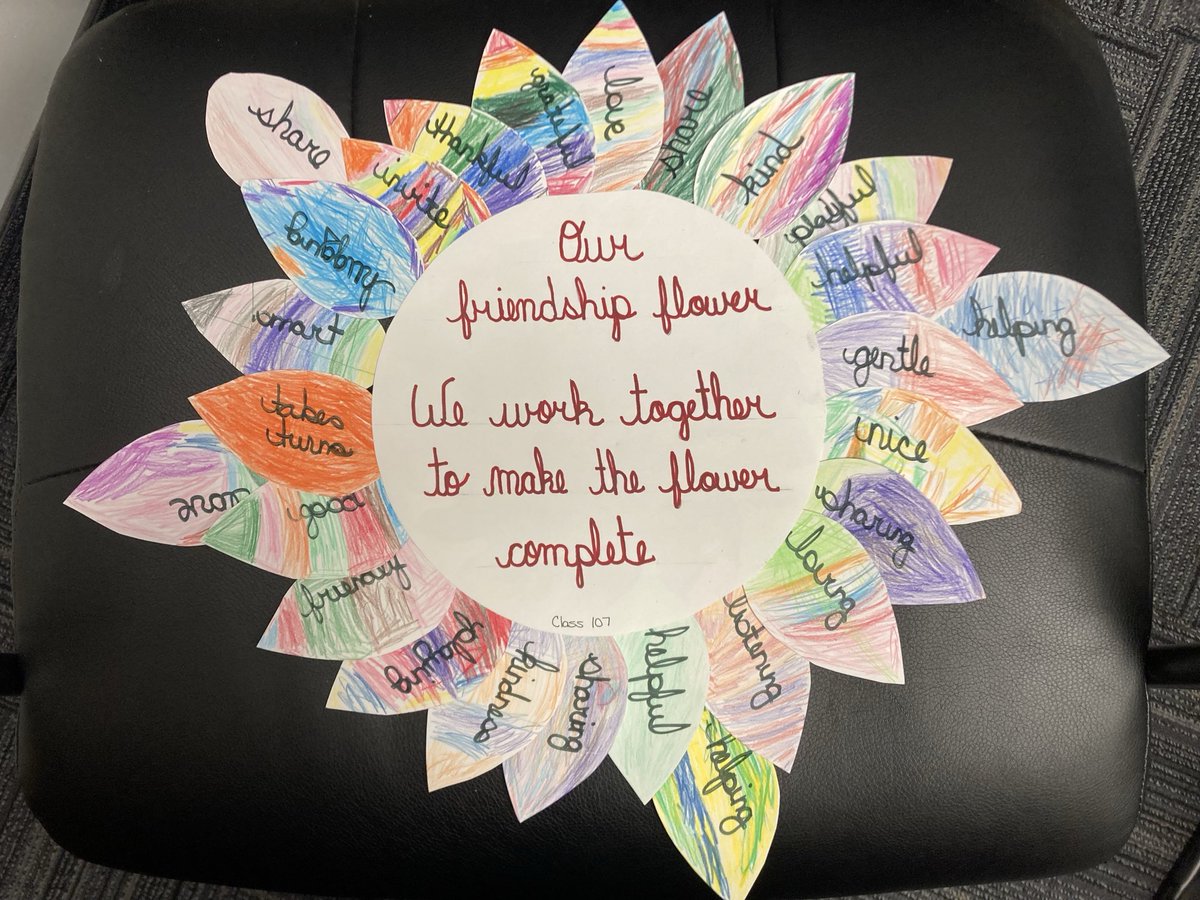 Our
friendship flower
We work together
to make the flower
complete
Class 107
love
share
kind
playful
helpful
helping
gentle
nice
sharing
loving
listening
helping
helpful
sharing
kindness
playing
friendly
good
takes
turns
smart
share
invite
thankful
grateful